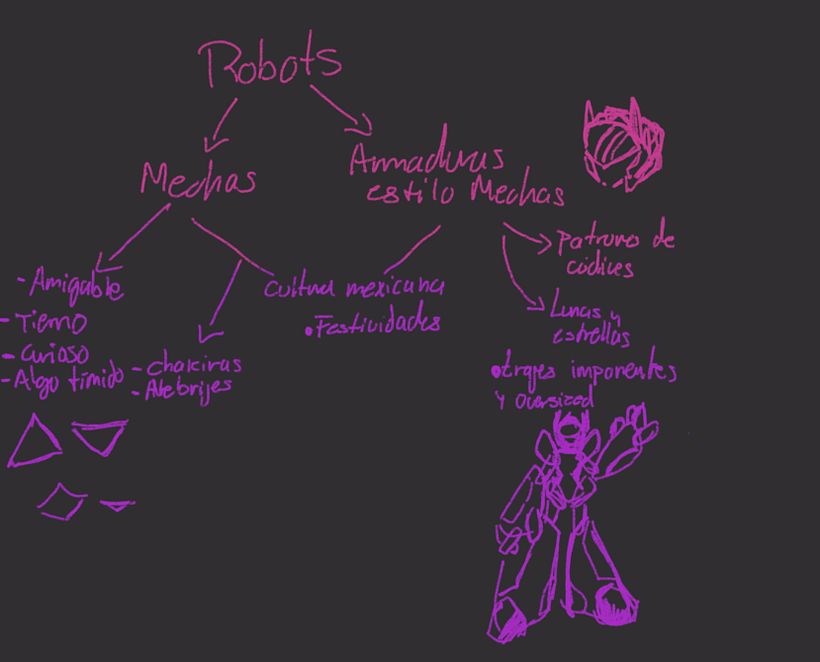 Robots
Mechas
Armaduras
estilo Mechas
- Amigable
- Tierno
- Curioso
- Algo tímido
- Chakiras
- Alebrijes
Cultura mexicana
• Festividades
Patrones de
códices
Lunas y
estrellas
• trajes imponentes
y oversized